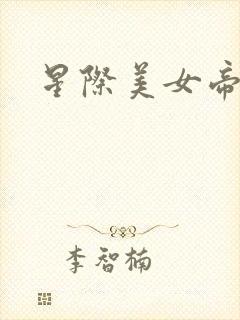 星際美女帝
李智楠